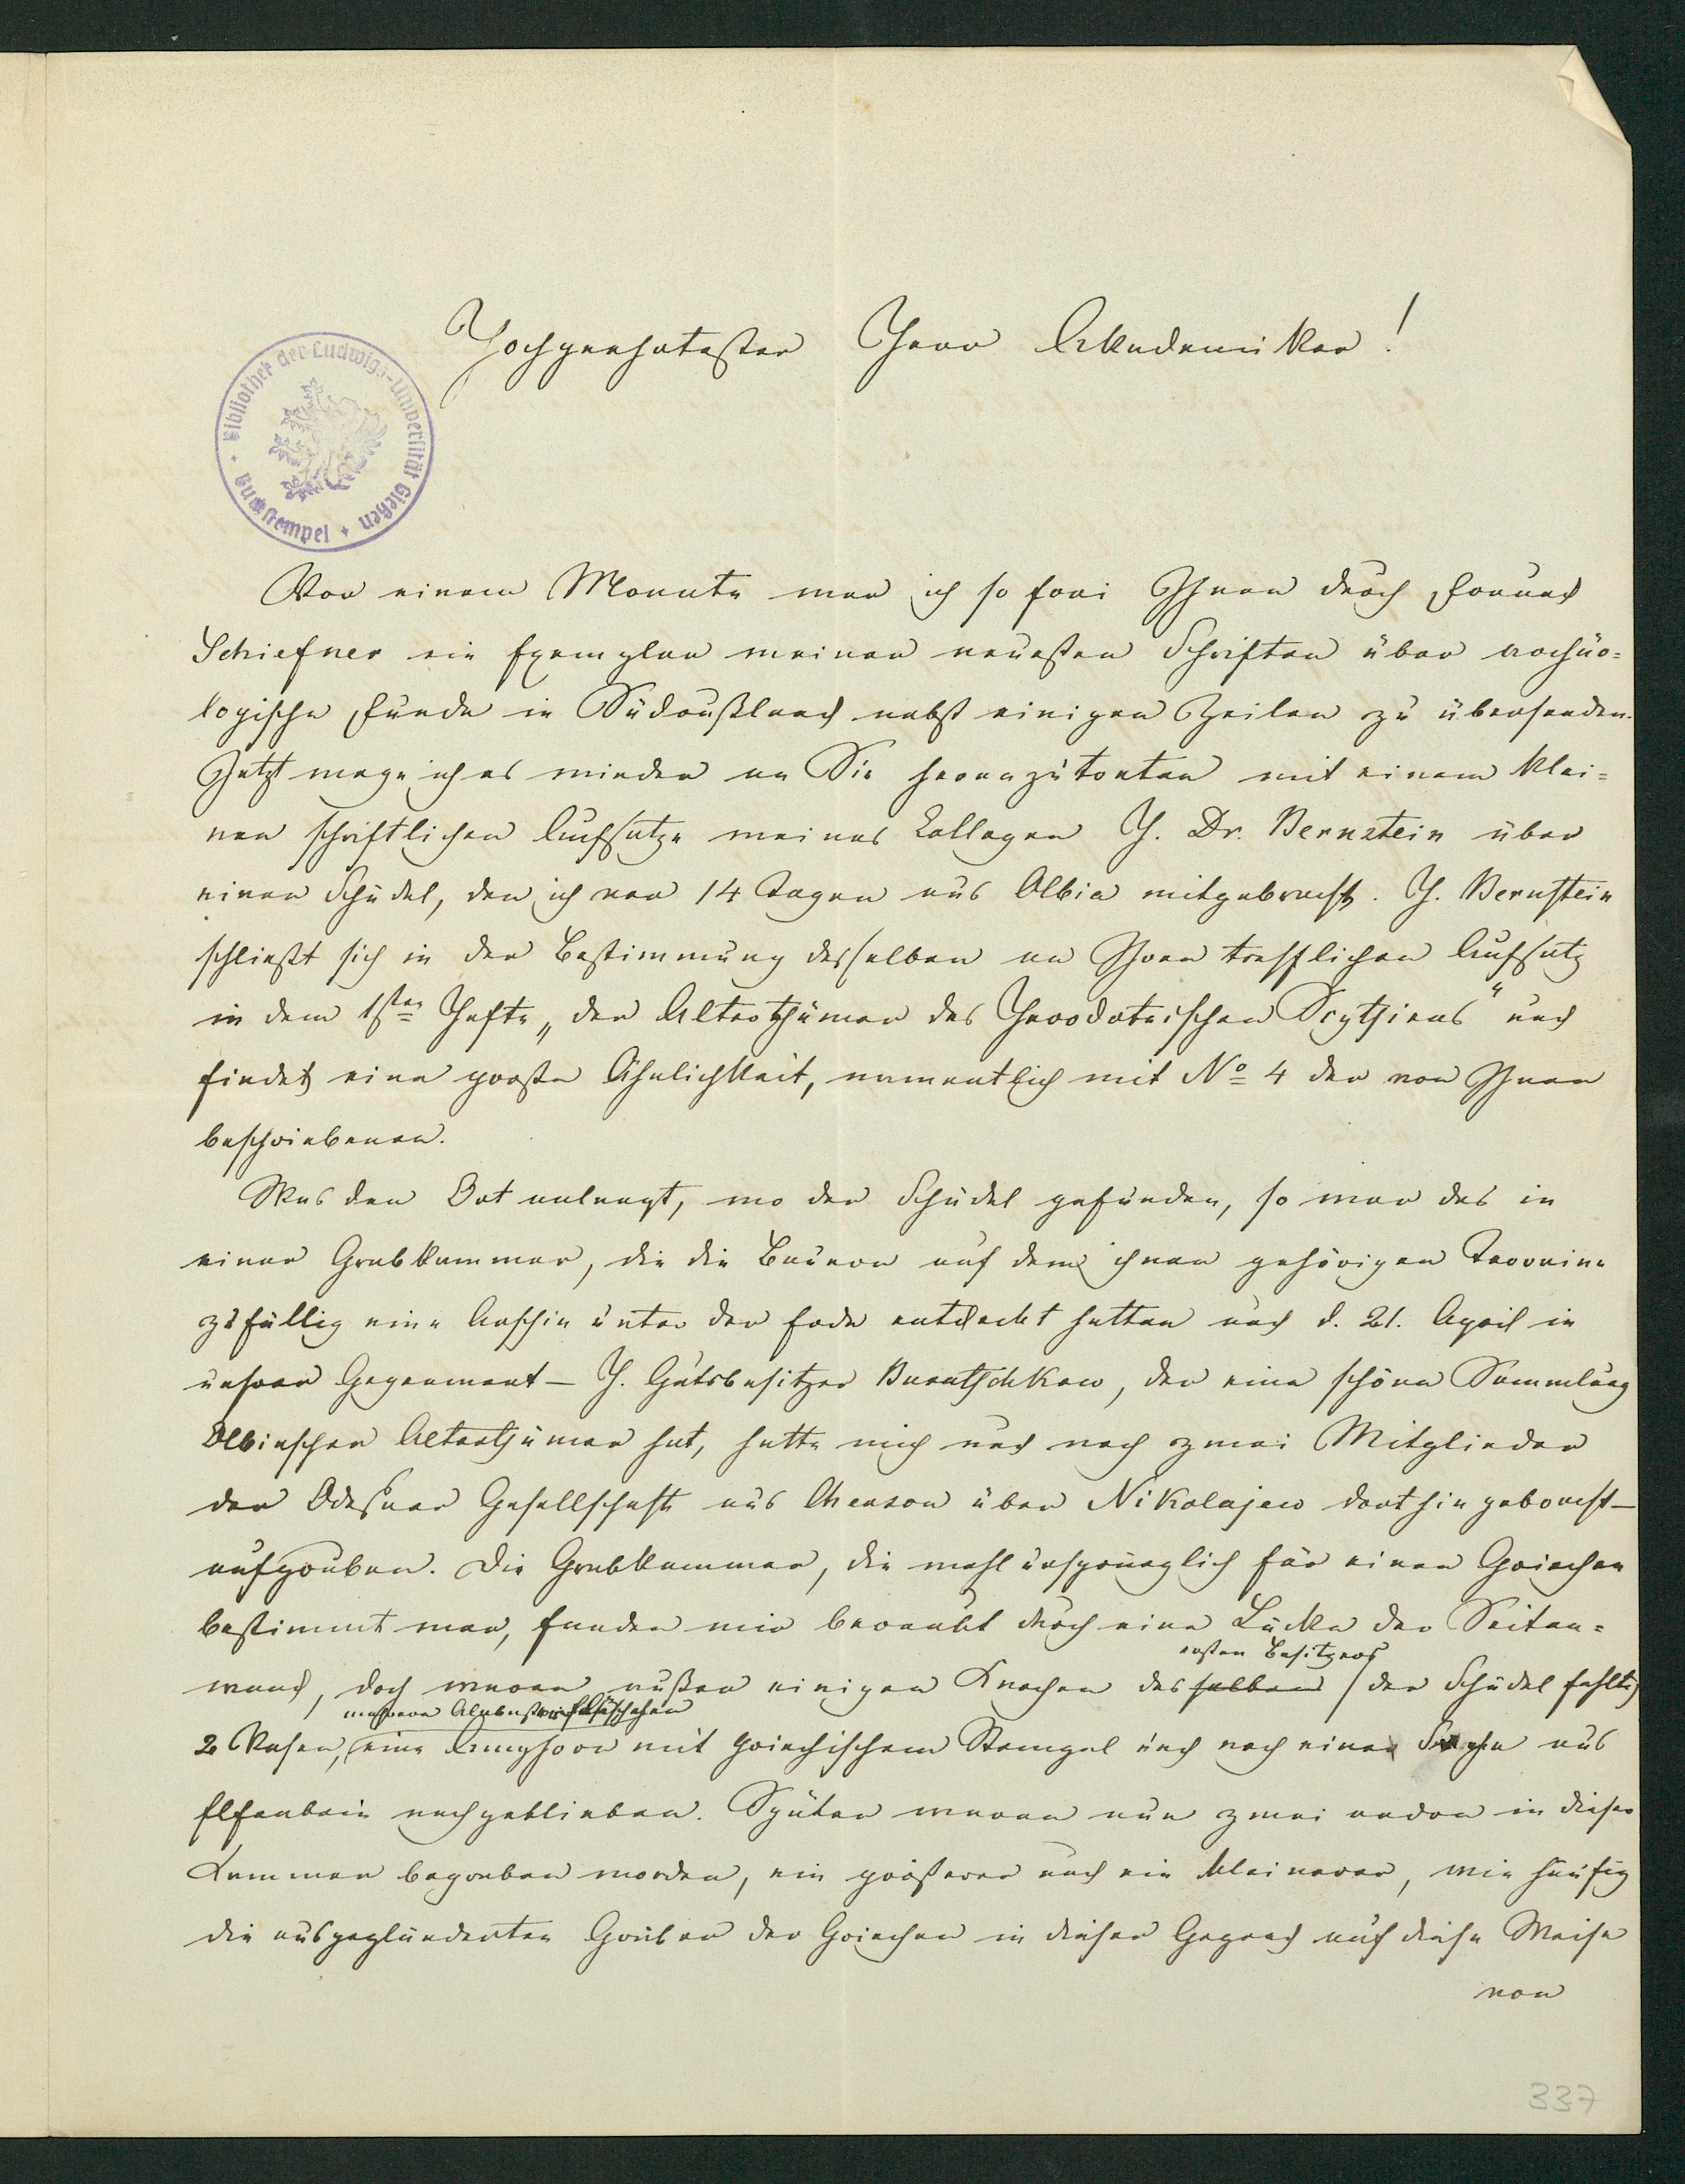 Hochgeehrtester Herr Akademiker!
Bibliothek der Ludwigs-Universität Gießen
Buchstempel
Vor einem Monate war ich so frei Ihnen durch Freund
Schiefner ein Exemplar meiner neuesten Schriften über archäo-
logische Funde in Südrußland nebst einigen Zeilen zu übersenden.
Jetzt wage ich es wieder an Sie heranzutreten mit einem klei-
nen schriftlichen Aufsatze meines Collegen H. Dr. Bernstein über
einen Schädel, den ich vor 14 Tagen aus Olbia mitgebracht. H. Bernstein
schließt sich in der Bestimmung desselben an Ihren trefflichen Aufsatz
in dem 1sten Hefte „der Alterthümer des Herodoteischen Scythiens" und
findet eine große Ähnlichkeit, namentlich mit No 4 der von Ihnen
beschriebenen.
Was den Ort anlangt, wo der Schädel gefunden, so war das in
einer Grabkammer, die die Bauern auf dem ihnen gehörigen Terrain
zufällig eine Arschin unter der Erde entdeckt hatten und d. 21. April in
unserer Gegenwart – H. Gutsbesitzer Buratschkow, der eine schöne Sammlung
Olbischer Alterthümer hat, hatte mich und noch zwei Mitglieder
der Odessaer Gesellschaft aus Cherson über Nikolajew dorthin gebracht –
aufgruben. Die Grabkammer, die wohl ursprünglich für einen Griechen
bestimmt war, fanden wir beraubt durch eine Lücke der Seiten-
ersten Besitzers
wand, doch waren außer einigen Knochen desselben (der Schädel fehlte)
mehrere Alabasterfläschchen
2 Vasen, eine Amphore mit griechischem Stempel und noch eine Sache aus
Elfenbein nachgeblieben. Später waren nun zwei andre in dieser
Kammer begraben worden, ein größerer und ein kleinerer, wie häufig
die ausgeplünderten Gräber der Griechen in dieser Gegend auf diese Weise
von
337